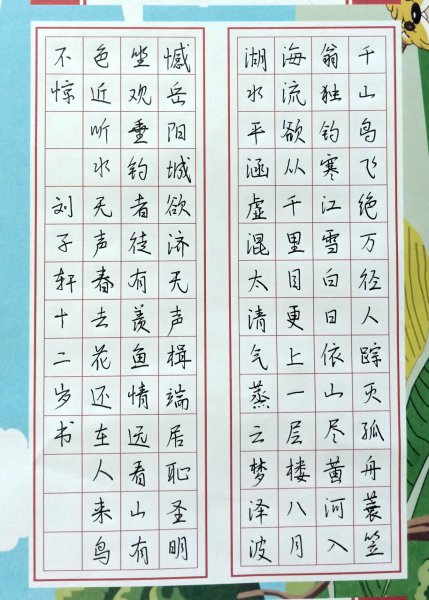 千山鸟飞绝万径人踪灭孤舟蓑笠
翁独钓寒江雪白日依山尽黄河入
海流欲从千里目更上一层楼八月
湖水平涵虚混太清气蒸云梦泽波
憾岳阳城欲济无声楫端居耻圣明
坐观垂钓者徒有羡鱼情远看山有
色近听水无声春去花还在人来鸟
不惊 刘子轩十二岁书